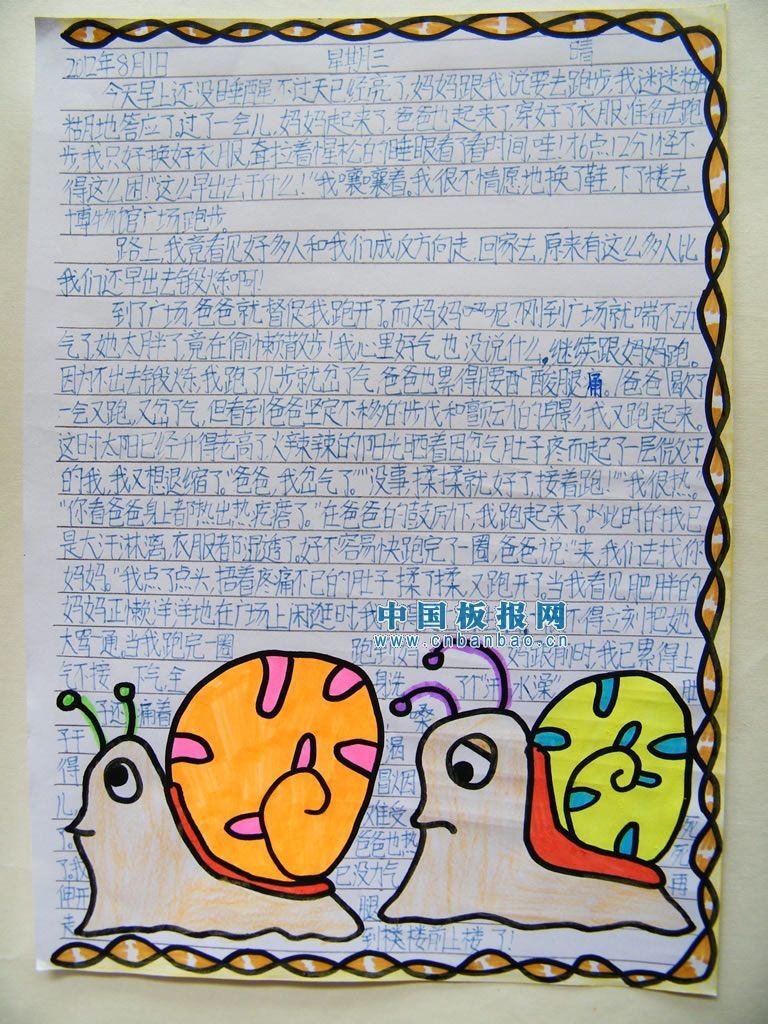 2012年8月1日 星期三 晴
今天早上还没睡醒,不过天已经亮了,妈妈跟我说要去跑步,我迷迷糊
糊地答应了,过了一会儿,妈妈起来了,爸爸也起来了,穿好了衣服准备去跑
步,我只好换好衣服,耷拉着惺松的睡眼看了看时间,哇!才6点12分!怪不
得这么困!"这么早出去,干什么!"我嚷嚷着。我很不情愿地换了鞋,下了楼去
博物馆广场跑步。
路上,我竟看见好多人和我们成反方向走,回家去,原来有这么多人比
我们还早出去锻炼啊!
到了广场,爸爸就督促我跑开了。而妈妈呢?刚到广场就喘不动
气了,她太胖了,竟在偷懒散步!我心里好气,也没说什么,继续跟妈妈跑。
因为不出去锻炼,我跑了几步就岔了气,爸爸也累得腰酸腿痛。爸爸歇了
一会又跑,又岔了气,但看到爸爸坚定不移的步伐和颤动的身影,我又跑起来。
这时太阳已经升得老高了,火辣辣的阳光晒着因岔气肚子疼而起了一层微汗
的我,我又想退缩了。"爸爸,我岔气了。""没事,揉揉就好了,接着跑!""我很热。"
"你看爸爸身上都热出热疙瘩了。"在爸爸的鼓励下,我跑起来了。此时的我已
是大汗淋漓,衣服都湿透了。好不容易快跑完了一圈,爸爸说:"来,我们去找你
妈妈。"我点了点头,捂着疼痛不已的肚子揉了揉,又跑开了,当我看见肥胖的
妈妈正懒洋洋地在广场上闲逛时,我 不得立刻把她
大骂一通,当我跑完一圈 跑到妈 妈妈跟前时,我已累得上
气不接下气,全 身洗 了个"汗水澡" 肚
子还痛着 嗓
子干 渴
得 冒烟
儿 难受 死
了。 爸爸也热 死
了。我 已没力气 再
伸开 腿
走 到楼前上楼了!
中国板报网
www.cnbanbao.cn